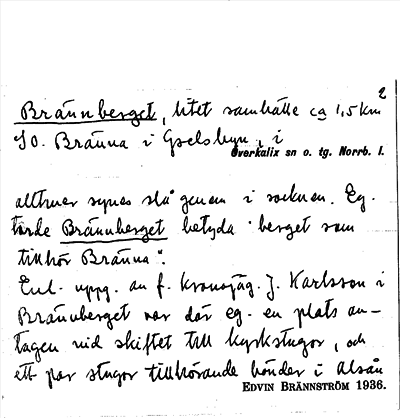 2
Brännberget, litet samhälle ca 1,5 km
SO. Bränna i Gyselsbyn, i
Överkalix sn o. tg. Norrb. l.
alltmer synes slå genom i socknen. Eg.
torde Brännberget betyda "berget som
tillhör Bränna".
Enl. uppg. av f. kronojäg. J. Karlsson i
Brännberget var där eg. en plats an-
tagen vid skiftet till kyrkstugor, och
ett par stugor tillhörande bönder i Alsån
EDVIN BRÄNNSTRÖM 1936.